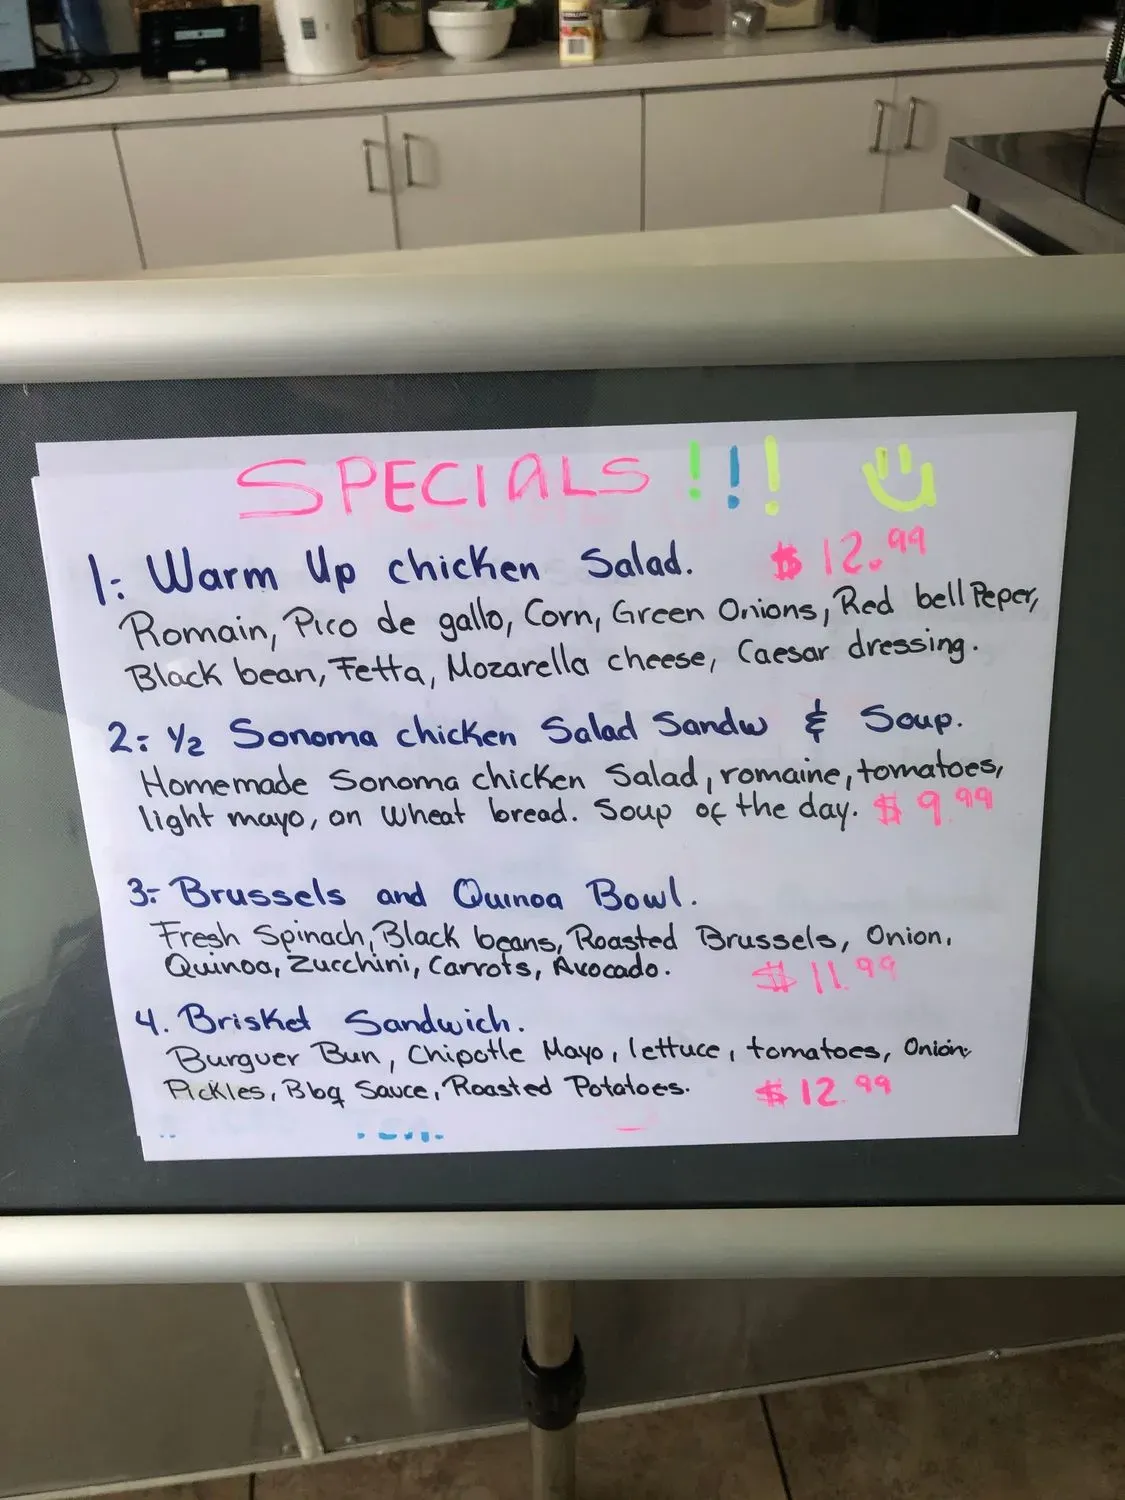 SPECIALS !!!
1: Warm Up chicken Salad. $ 12.99
Romain, Pico de gallo, Corn, Green Onions, Red bell Peper,
Black bean, Fetta, Mozarella cheese, Caesar dressing.
2: ½ Sonoma chicken Salad Sandw & Soup.
Homemade Sonoma chicken Salad, romaine, tomatoes,
light mayo, on wheat bread. Soup of the day. $ 9.99
3: Brussels and Quinoa Bowl.
Fresh Spinach, Black beans, Roasted Brussels, Onion,
Quinoa, Zucchini, Carrots, Avocado. $ 11.99
4. Brisket Sandwich.
Burguer Bun, Chipotle Mayo, lettuce, tomatoes, Onion,
Pickles, Bbq Sauce, Roasted Potatoes. $ 12.99